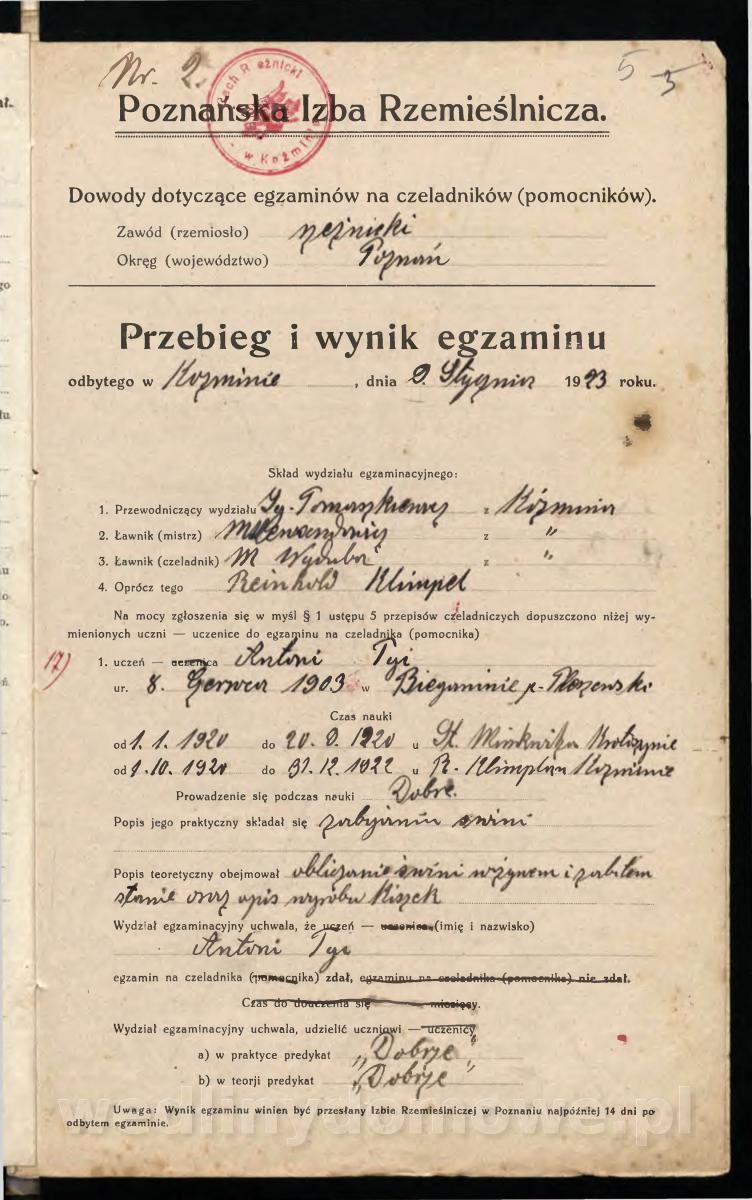 Nr. 2.
5 5
Cech Rzeźnicki w Koźminie
Poznańska Izba Rzemieślnicza.
Dowody dotyczące egzaminów na czeladników (pomocników).
Zawód (rzemiosło) rzeźnicki
Okręg (województwo) Poznań
Przebieg i wynik egzaminu
odbytego w Kozminie, dnia 2. Stycznia 1923 roku.
Skład wydziału egzaminacyjnego:
1. Przewodniczący wydziału Ig. Tomaszkiewicz z Koźmina
2. Ławnik (mistrz) z "
3. Ławnik (czeladnik) M z "
4. Oprócz tego Reinhold Klimpel
Na mocy zgłoszenia się w myśl § 1 ustępu 5 przepisów czeladniczych dopuszczono niżej wy-
mienionych uczni — uczenice do egzaminu na czeladnika (pomocnika)
17)
1. uczeń — uczenica Antoni Tyi
ur. 8. Czerwca 1903 w Bieganinie p. Pleszewski
Czas nauki
od 1. 1. 1920 do 20. 9. 1920 u St.
od 1. 10. 1920 do 31. 12. 1922 u R. Klimplem Kozminie
Prowadzenie się podczas nauki Dobre.
Popis jego praktyczny składał się zabijaniu swini
Popis teoretyczny obejmował obliczanie swini w żywem i zabitem
stanie oraz opis wyrobu Kiszek
Wydział egzaminacyjny uchwala, że uczeń — uczenica (imię i nazwisko)
Antoni Tyi
egzamin na czeladnika (pomocnika) zdał, egzaminu na czeladnika (pomocnika) nie zdał.
Czas do douczenia się miesięcy.
Wydział egzaminacyjny uchwala, udzielić uczniowi — uczenicy
a) w praktyce predykat „Dobrze"
b) w teorji predykat „Dobrze"
Uwaga: Wynik egzaminu winien być przesłany Izbie Rzemieślniczej w Poznaniu najpóźniej 14 dni po
odbytem egzaminie.
wedlinydomowe.pl